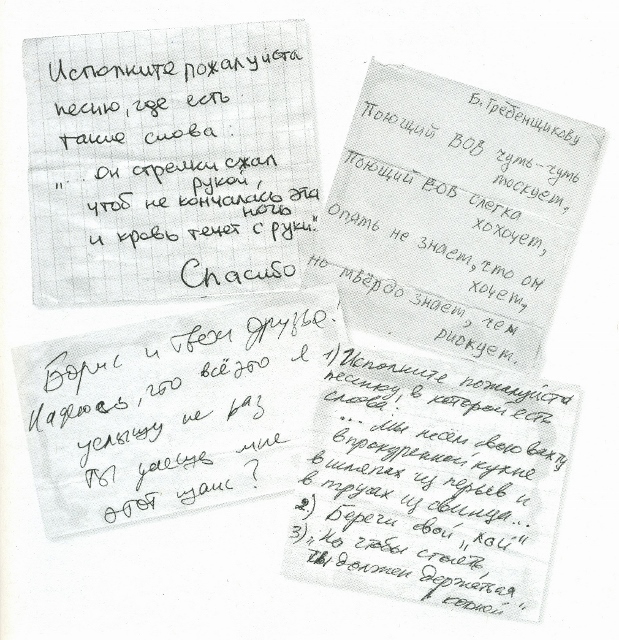 Исполните пожалуйста
песню, где есть
такие слова:
"... он стрелки сжал
рукой,
чтоб не кончалась эта
ночь
и кровь течет с руки."
Спасибо
Б. Гребенщикову
Поющий ВОВ чуть-чуть
тоскует,
Поющий ВОВ слегка
хохочет,
Опять не знает, что он
хочет,
но твёрдо знает, чем
рискует.
Борис и твои друзья.
Надеюсь, что всё это я
услышу не раз
Ты даешь мне
этот шанс?
1) Исполните пожалуйста
песенку, в которой есть
слова:
... Мы несём свою вахту
в прокуренной кухне
в шляпах из перьев и
в трусах из свинца...
2) Береги свой "хой"
3) "Но чтобы стоять,
ты должен держаться
корней"